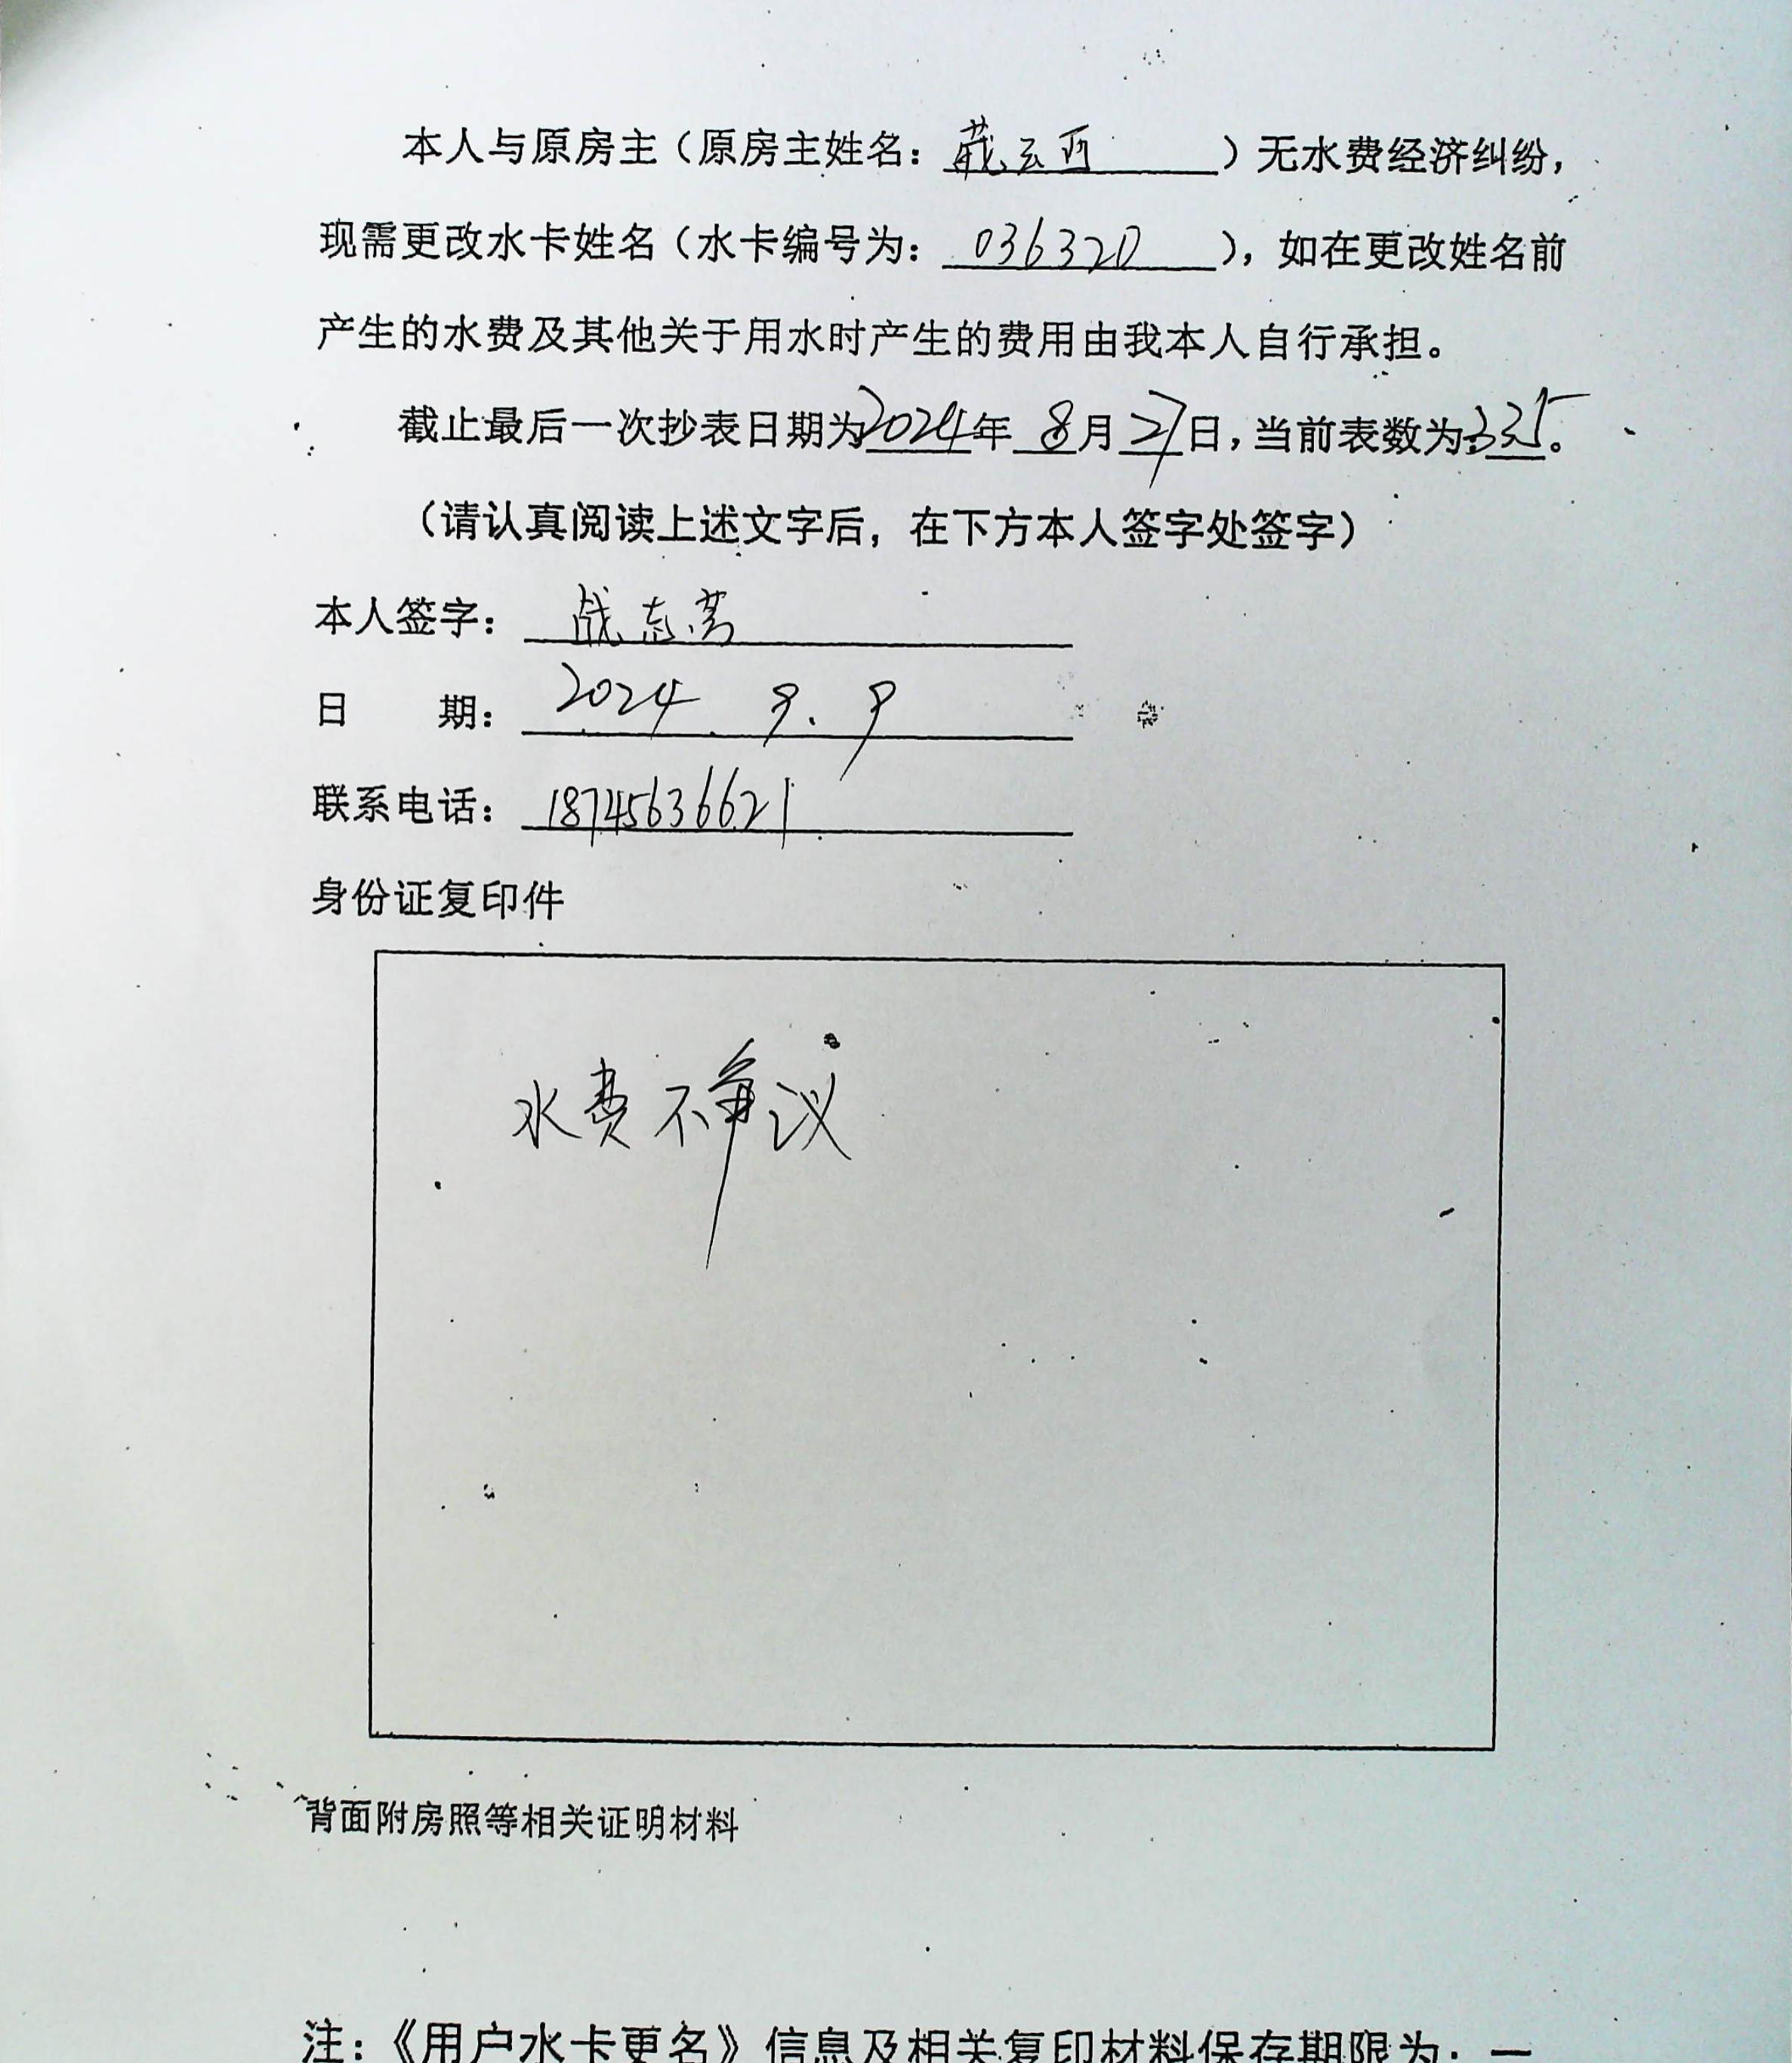 本人与原房主（原房主姓名：）无水费经济纠纷，
现需更改水卡姓名（水卡编号为：036320），如在更改姓名前
产生的水费及其他关于用水时产生的费用由我本人自行承担。
截止最后一次抄表日期为2024年8月27日，当前表数为335。
（请认真阅读上述文字后，在下方本人签字处签字）
本人签字：战志
日 期：2024 9.9
联系电话：18745636621
身份证复印件
水费不争议
背面附房照等相关证明材料
注：《用户水卡更名》信息及相关复印材料保存期限为：一